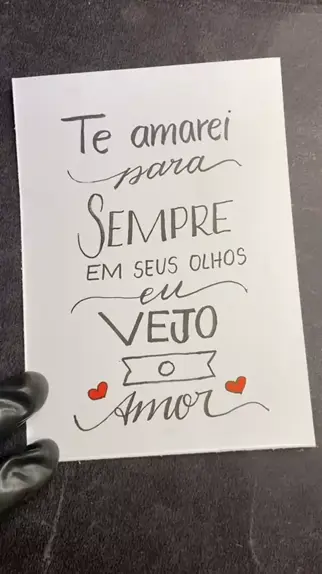 Te amarei
para
SEMPRE
EM SEUS OLHOS
eu
VEJO
O
Amor